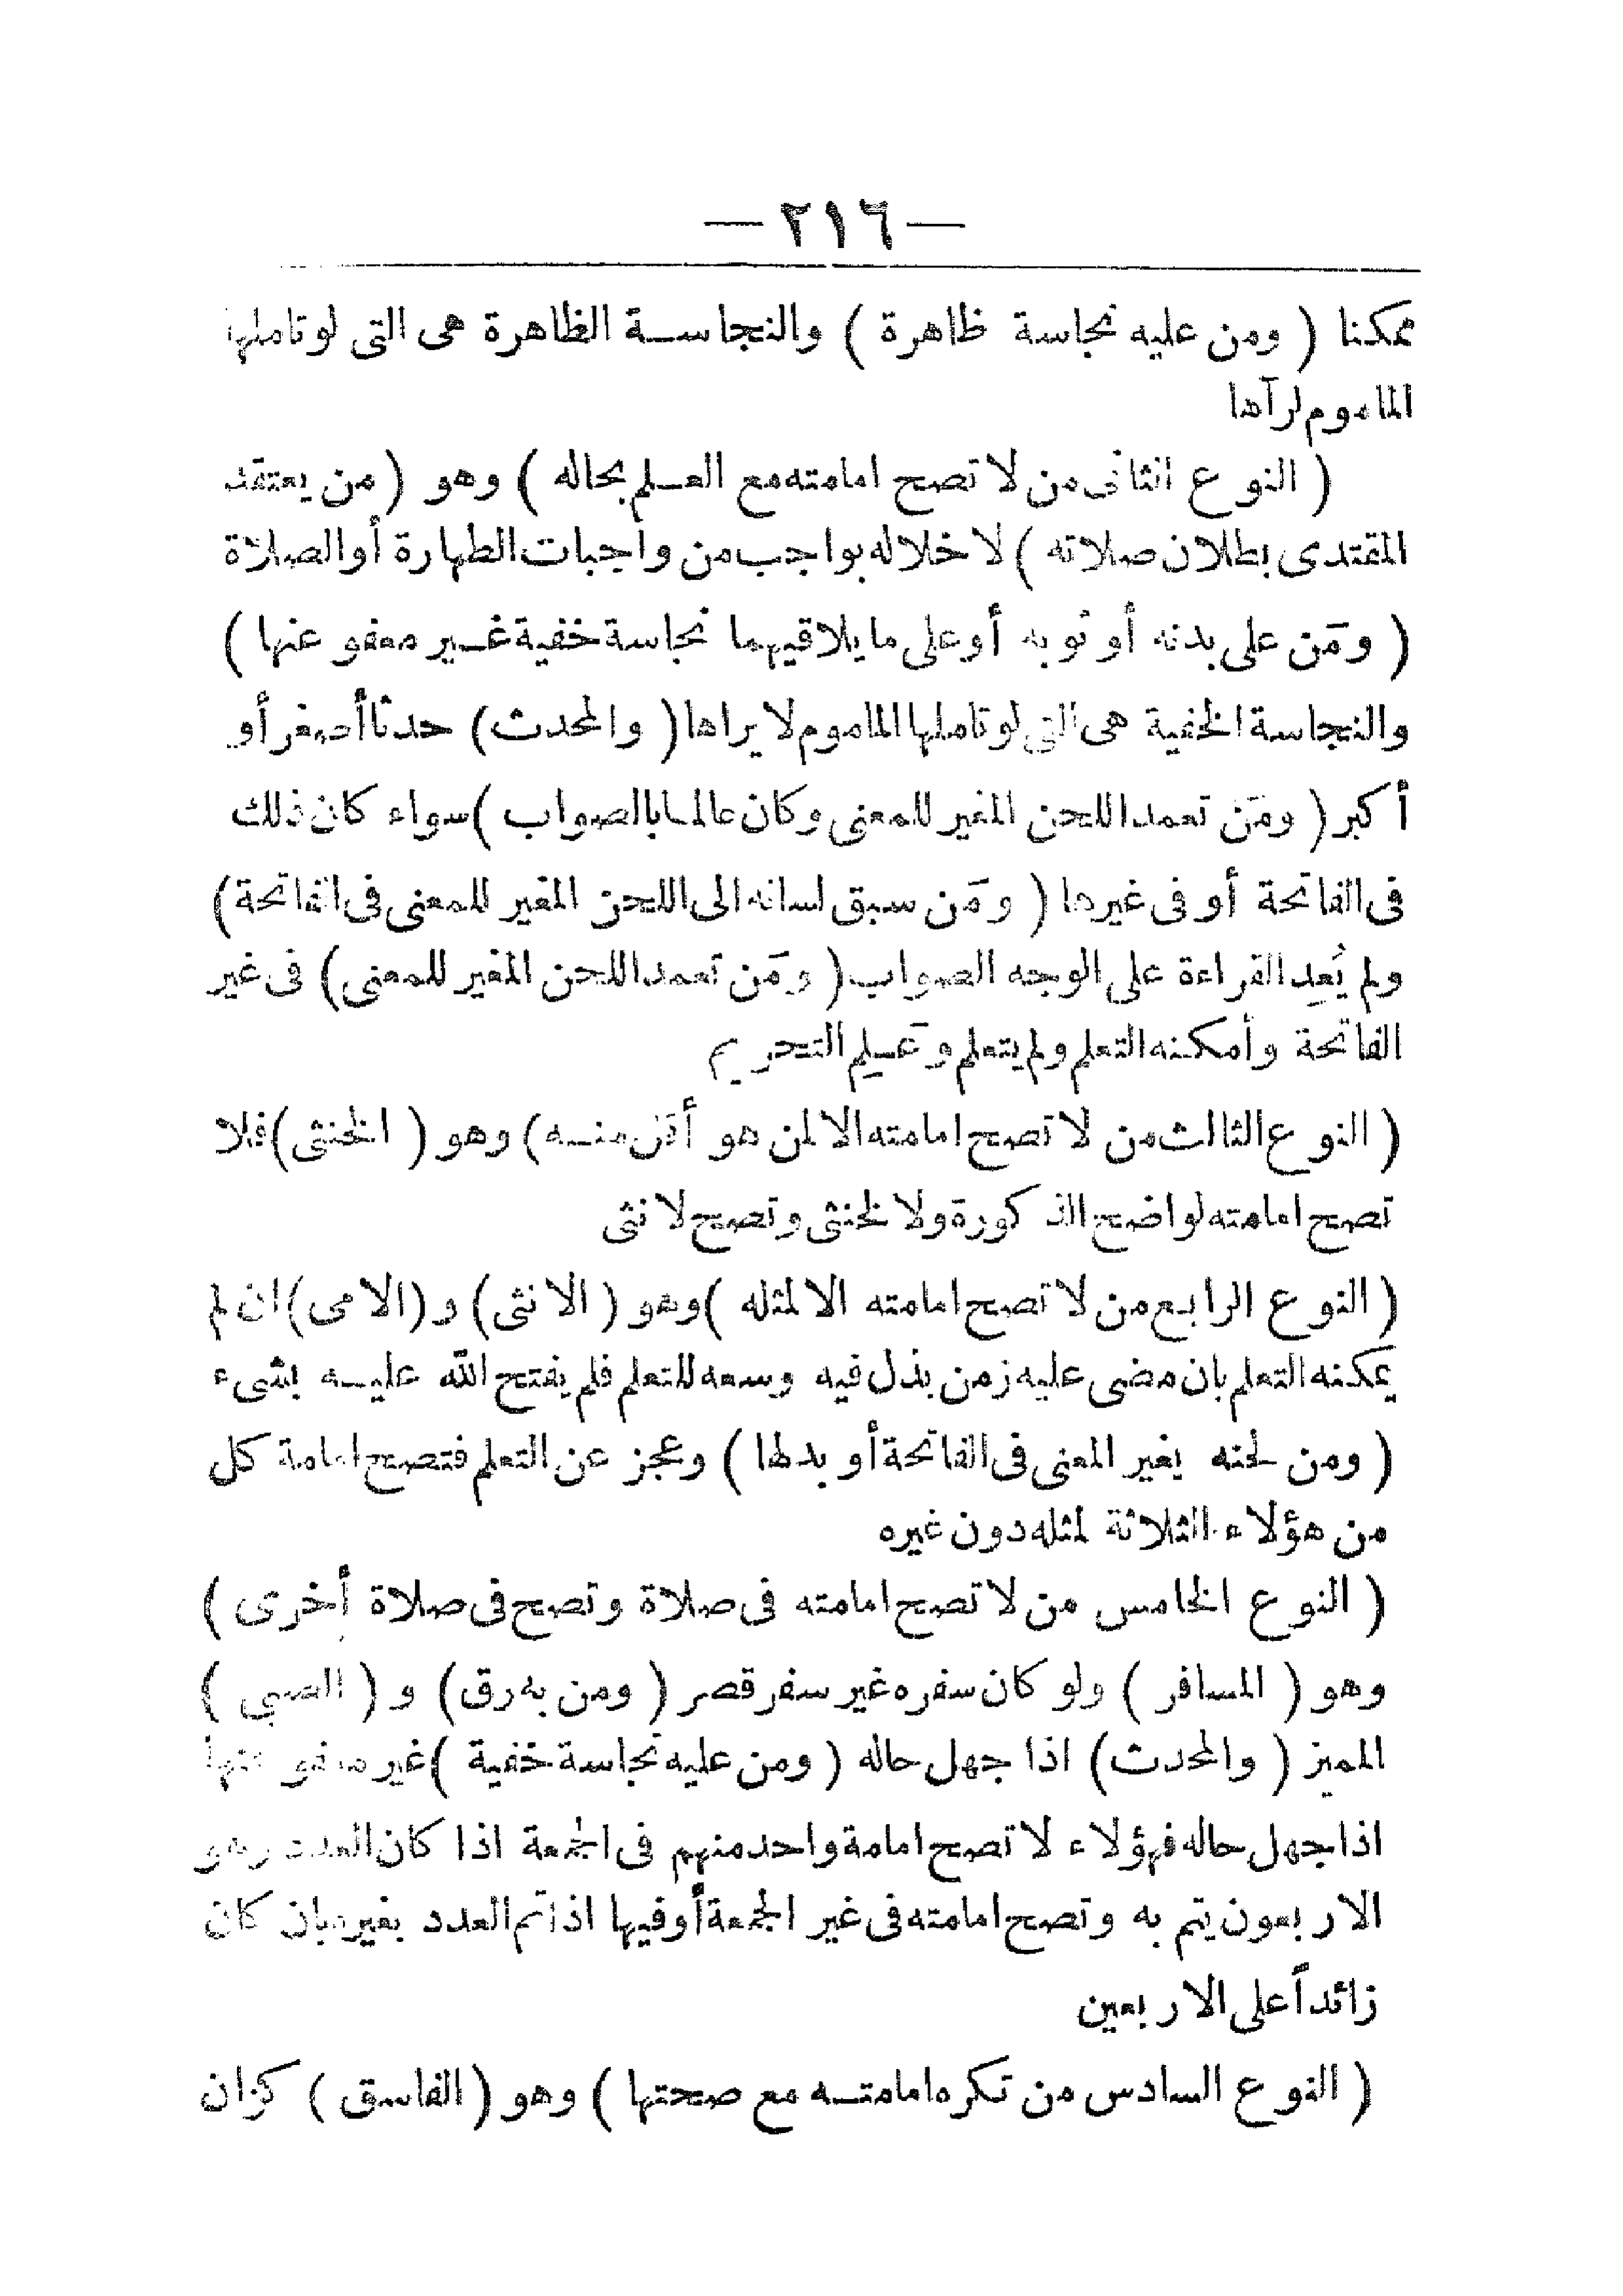 — ٢١٦ —
ممكنا ( ومن عليه نجاسة ظاهرة ) والنجاسة الظاهرة هى التى لو تاملها
الماموم لرآها
( النوع الثانى من لا تصح امامته مع العلم بحاله ) وهو ( من يعتقد
المقتدى بطلان صلاته ) لاخلاله بواجب من واجبات الطهارة أو الصلاة
( ومَن على بدنه أو ثوبه أو على ما يلاقيهما نجاسة خفية غير معفو عنها )
والنجاسة الخفية هى التى لو تاملها الماموم لا يراها ( والمحدث ) حدثا أصغر أو
أكبر ( ومَن تعمد اللحن المغير للمعنى وكان عالما بالصواب ) سواء كان ذلك
فى الفاتحة أو فى غيرها ( ومَن سبق لسانه الى اللحن المغير للمعنى فى الفاتحة )
ولم يُعِد القراءة على الوجه الصواب ( ومَن تعمد اللحن المغير للمعنى ) فى غير
الفاتحة وأمكنه التعلم ولم يتعلم وعَلِم التحريم
( النوع الثالث من لا تصح امامته الا لمن هو أقل منه ) وهو ( الخنثى ) فلا
تصح امامته لواضح الذكورة ولا لخنثى وتصح لانثى
( النوع الرابع من لا تصح امامته الا لمثله ) وهو ( الانثى ) و ( الامى ) ان لم
يمكنه التعلم بان مضى عليه زمن بذل فيه وسعه للتعلم فلم يفتح الله عليه بشىء
( ومن لحنه يغير المعنى فى الفاتحة أو بدلها ) وعجز عن التعلم فتصح امامة كل
من هؤلاء الثلاثة لمثله دون غيره
( النوع الخامس من لا تصح امامته فى صلاة وتصح فى صلاة أخرى )
وهو ( المسافر ) ولو كان سفره غير سفر قصر ( ومن به رق ) و ( الصبى )
المميز ( والمحدث ) اذا جهل حاله ( ومن عليه نجاسة خفية ) غير معفو عنها
اذا جهل حاله فهؤلاء لا تصح امامة واحد منهم فى الجمعة اذا كان العدد وهو
الاربعون يتم به وتصح امامته فى غير الجمعة أو فيها اذا تم العدد بغيره بان كان
زائداً على الاربعين
( النوع السادس من تكره امامته مع صحتها ) وهو ( الفاسق ) كزان